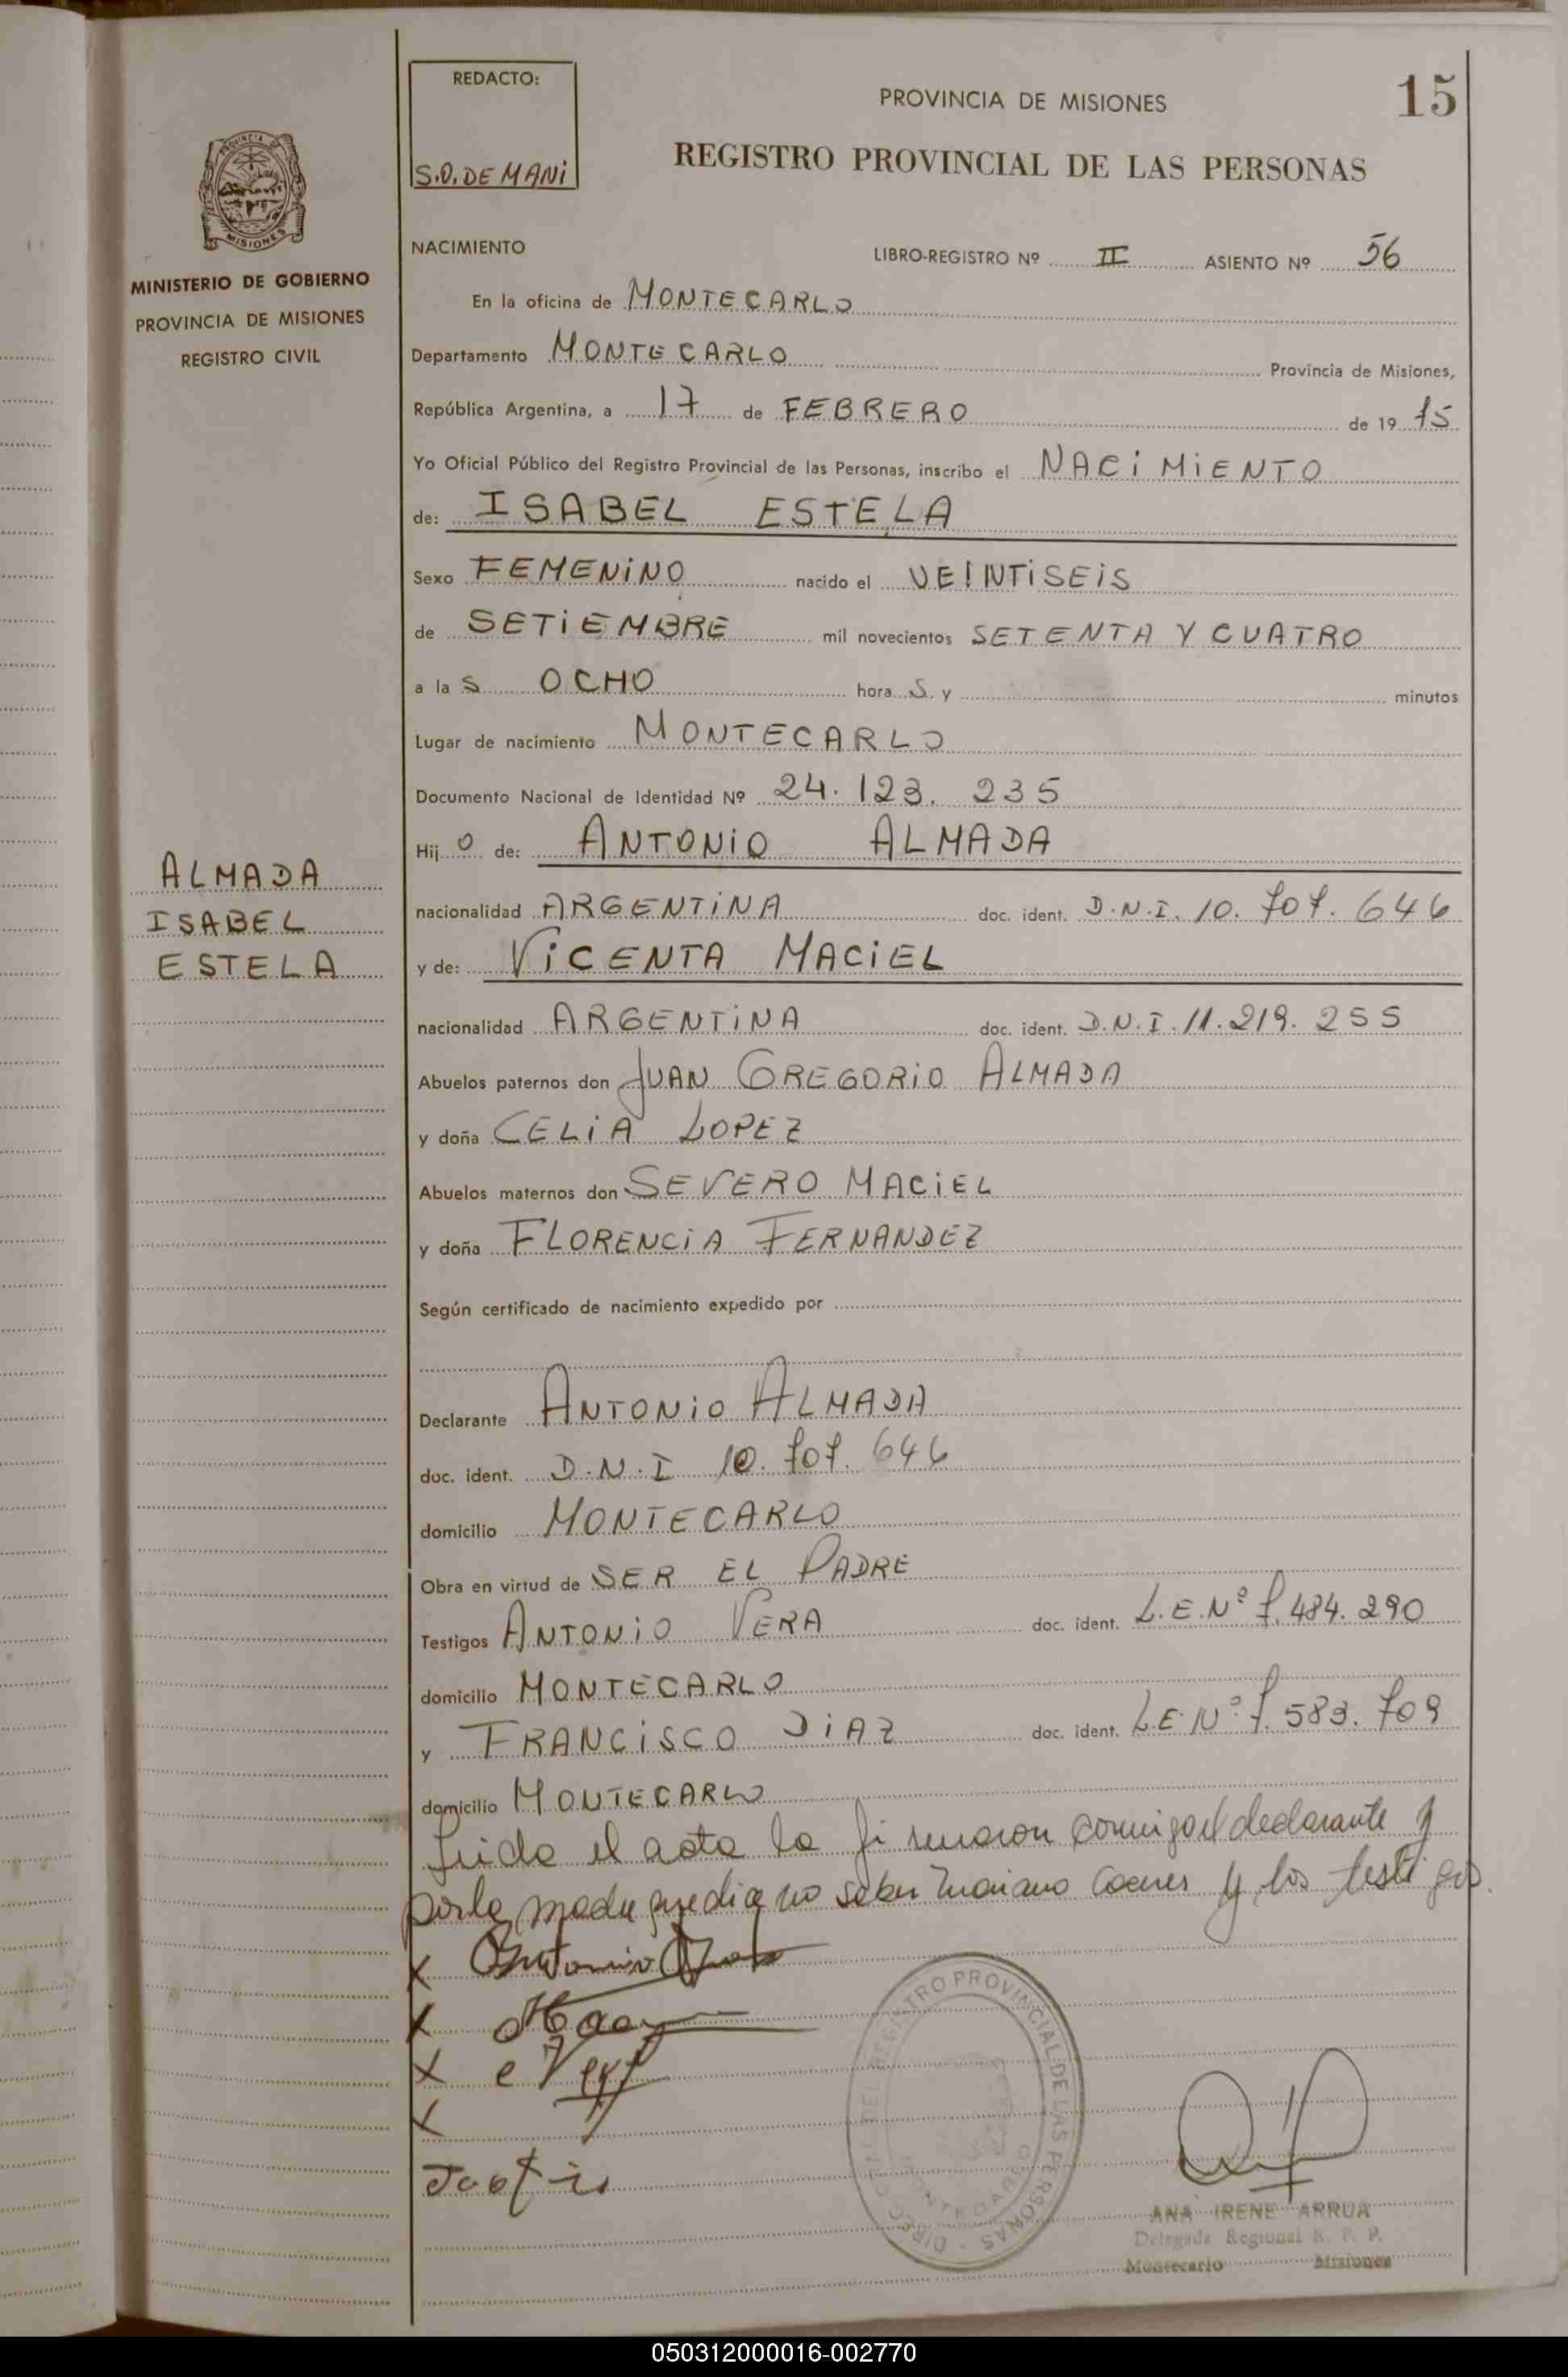 REDACTO:
S.O. DE MANI
PROVINCIA DE MISIONES
15
REGISTRO PROVINCIAL DE LAS PERSONAS
MINISTERIO DE GOBIERNO
PROVINCIA DE MISIONES
REGISTRO CIVIL
NACIMIENTO LIBRO-REGISTRO Nº II ASIENTO Nº 56
En la oficina de MONTECARLO
Departamento MONTECARLO Provincia de Misiones,
República Argentina, a 17 de FEBRERO de 1975
Yo Oficial Público del Registro Provincial de las Personas, inscribo el NACIMIENTO
de: ISABEL ESTELA
Sexo FEMENINO nacido el VEINTISEIS
de SETIEMBRE mil novecientos SETENTA Y CUATRO
a las OCHO horas y minutos
Lugar de nacimiento MONTECARLO
Documento Nacional de Identidad Nº 24.123.235
Hijo de: ANTONIO ALMADA
ALMADA
ISABEL
ESTELA
nacionalidad ARGENTINA doc. ident. D.N.I. 10.707.646
y de: VICENTA MACIEL
nacionalidad ARGENTINA doc. ident. D.N.I. 11.219.255
Abuelos paternos don JUAN GREGORIO ALMADA
y doña CELIA LOPEZ
Abuelos maternos don SEVERO MACIEL
y doña FLORENCIA FERNANDEZ
Según certificado de nacimiento expedido por
Declarante ANTONIO ALMADA
doc. ident. D.N.I 10.707.646
domicilio MONTECARLO
Obra en virtud de SER EL PADRE
Testigos ANTONIO VERA doc. ident. L.E.Nº 7.484.290
domicilio MONTECARLO
y FRANCISCO DIAZ doc. ident. L.E.Nº 7.583.709
domicilio MONTECARLO
Leida el acta la firmaron conmigo el declarante y
por la madre que dice no saber Mariano y los testigos.
x Antonio
x
x
x
DIRECCION DEL REGISTRO PROVINCIAL DE LAS PERSONAS - MONTECARLO
ANA IRENE ARRUA
Delegada Regional R. P. P.
Montecarlo Misiones
050312000016-002770